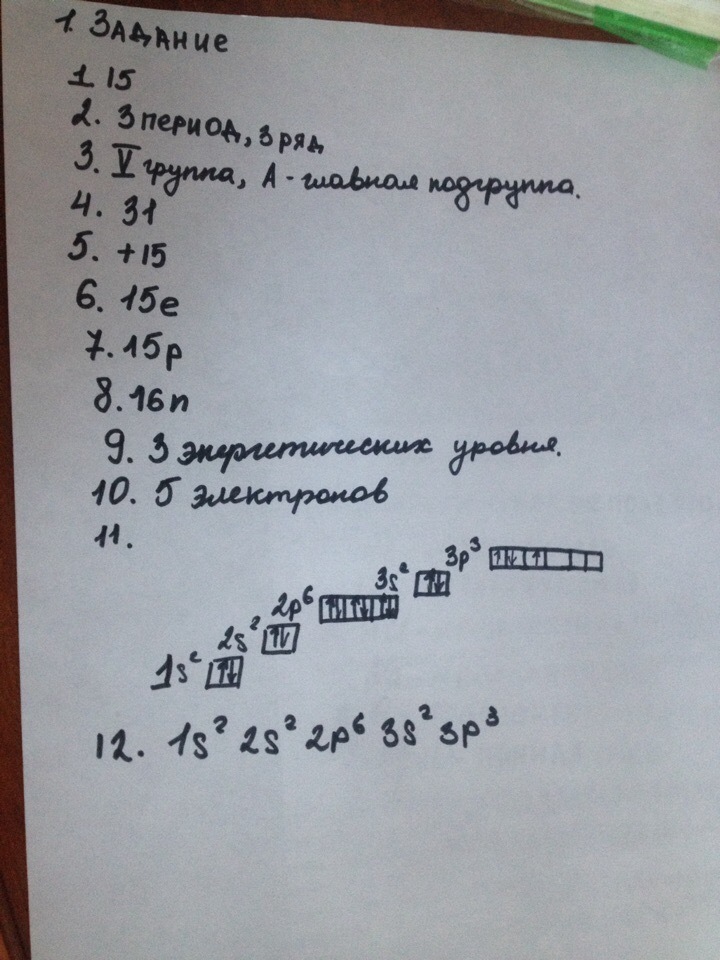 1. ЗАДАНИЕ
1 15
2. 3 период, 3 ряд
3. V группа, А - главная подгруппа.
4. 31
5. +15
6. 15e
7. 15p
8. 16n
9. 3 энергетических уровня.
10. 5 электронов
11.
1s² ↑↓ 2s² ↑↓ 2p⁶ ↑↓ ↑↓ ↑↓ 3s² ↑↓ 3p³ ↑↓ ↑
12. 1s² 2s² 2p⁶ 3s² 3p³